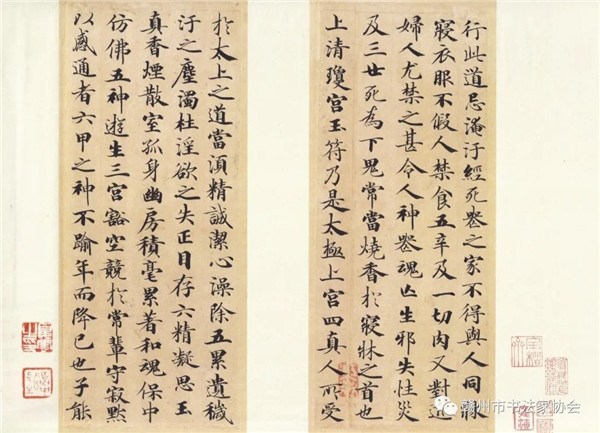 行此道忌淹汙經死喪之家不得與人同牀
寢衣服不假人禁食五辛及一切肉又對近
婦人尤禁之甚令人神喪魂亡生邪失性災
及三世死為下鬼常當燒香於寢牀之首也
上清瓊宮玉符乃是太極上宮四真人所受
於太上之道當須精誠潔心澡除五累遺穢
汙之塵濁杜淫欲之失正目存六精凝思玉
真香煙散室孤身幽房積毫累著和魂保中
仿佛五神遊生三宮豁空競於常輩守寂默
以感通者六甲之神不踰年而降已也子能
赣州市书法家协会